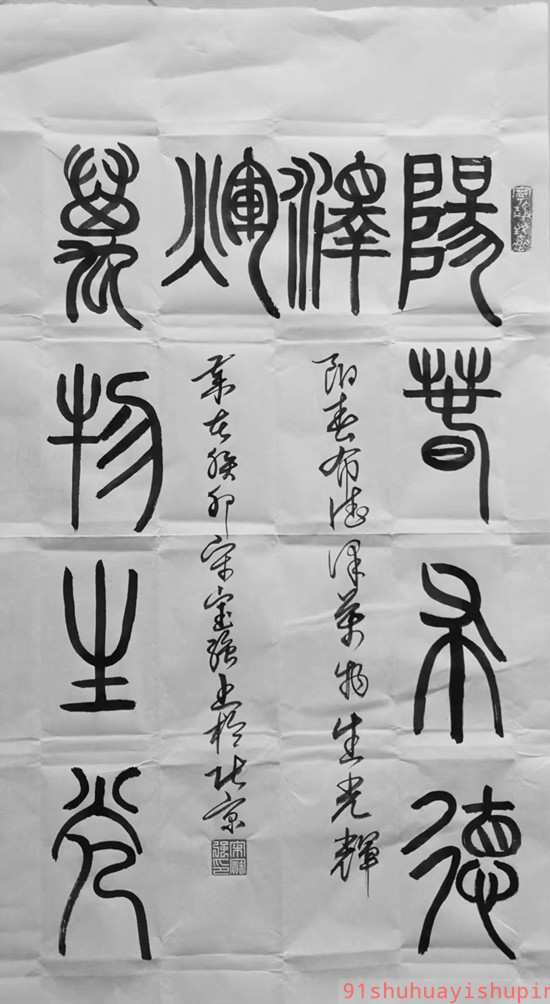 陽春布德
澤
萬物生光
煇
陽春布德澤萬物生光輝
歲在癸卯宋宝强书於北京
91shuhuayishupin